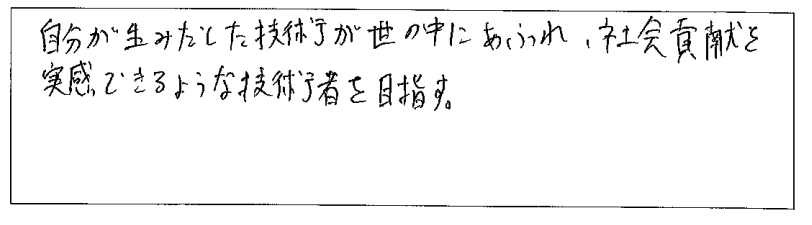 自分が生みだした技術が世の中にあふれ、社会貢献を
実感できるような技術者を目指す。